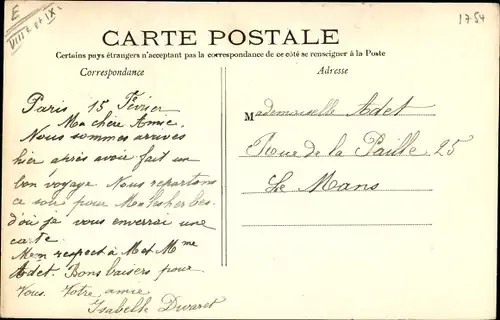 E
VIII e et IX e
1754
CARTE POSTALE
Certains pays étrangers n'acceptant pas la correspondance de ce côté se renseigner à la Poste
Correspondance
Adresse
Paris 15 Février
Ma chère Amie.
Nous sommes arrivés
hier après avoir fait un
bon voyage. Nous repartons
ce soir pour Malesherbes.
d'où je vous enverrai une
carte.
Mon respect à M et Mme
Adet. Bons baisers pour
Vous. Votre amie
Isabelle
Mademoiselle Adet
Rue de la Paille 25
Le Mans